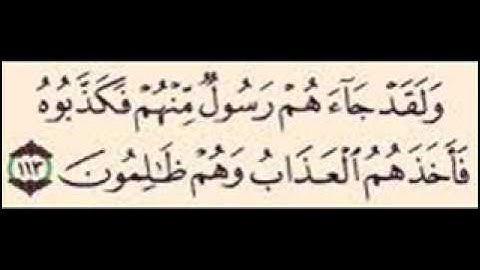 وَلَقَدْ جَآءَ هُمْ رَسُولٌ مِّنْهُمْ فَكَذَّبُوهُ
فَأَخَذَهُمُ الْعَذَابُ وَهُمْ ظَٰلِمُونَ ١١٣